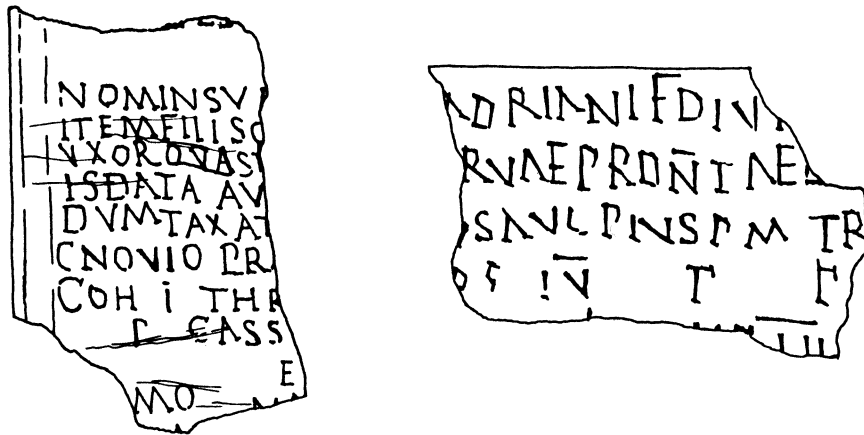 NOMINSV
ITEMFILISO
VXOROVAS
ISDATA AV
DVMTAXAT
CNOVIO PR
COH I THR
P CASS
E
MO
ADRIANIFDIVI
RVAEPRON̄TAE
SAVLPINSPM TR
OS IV̄ P P